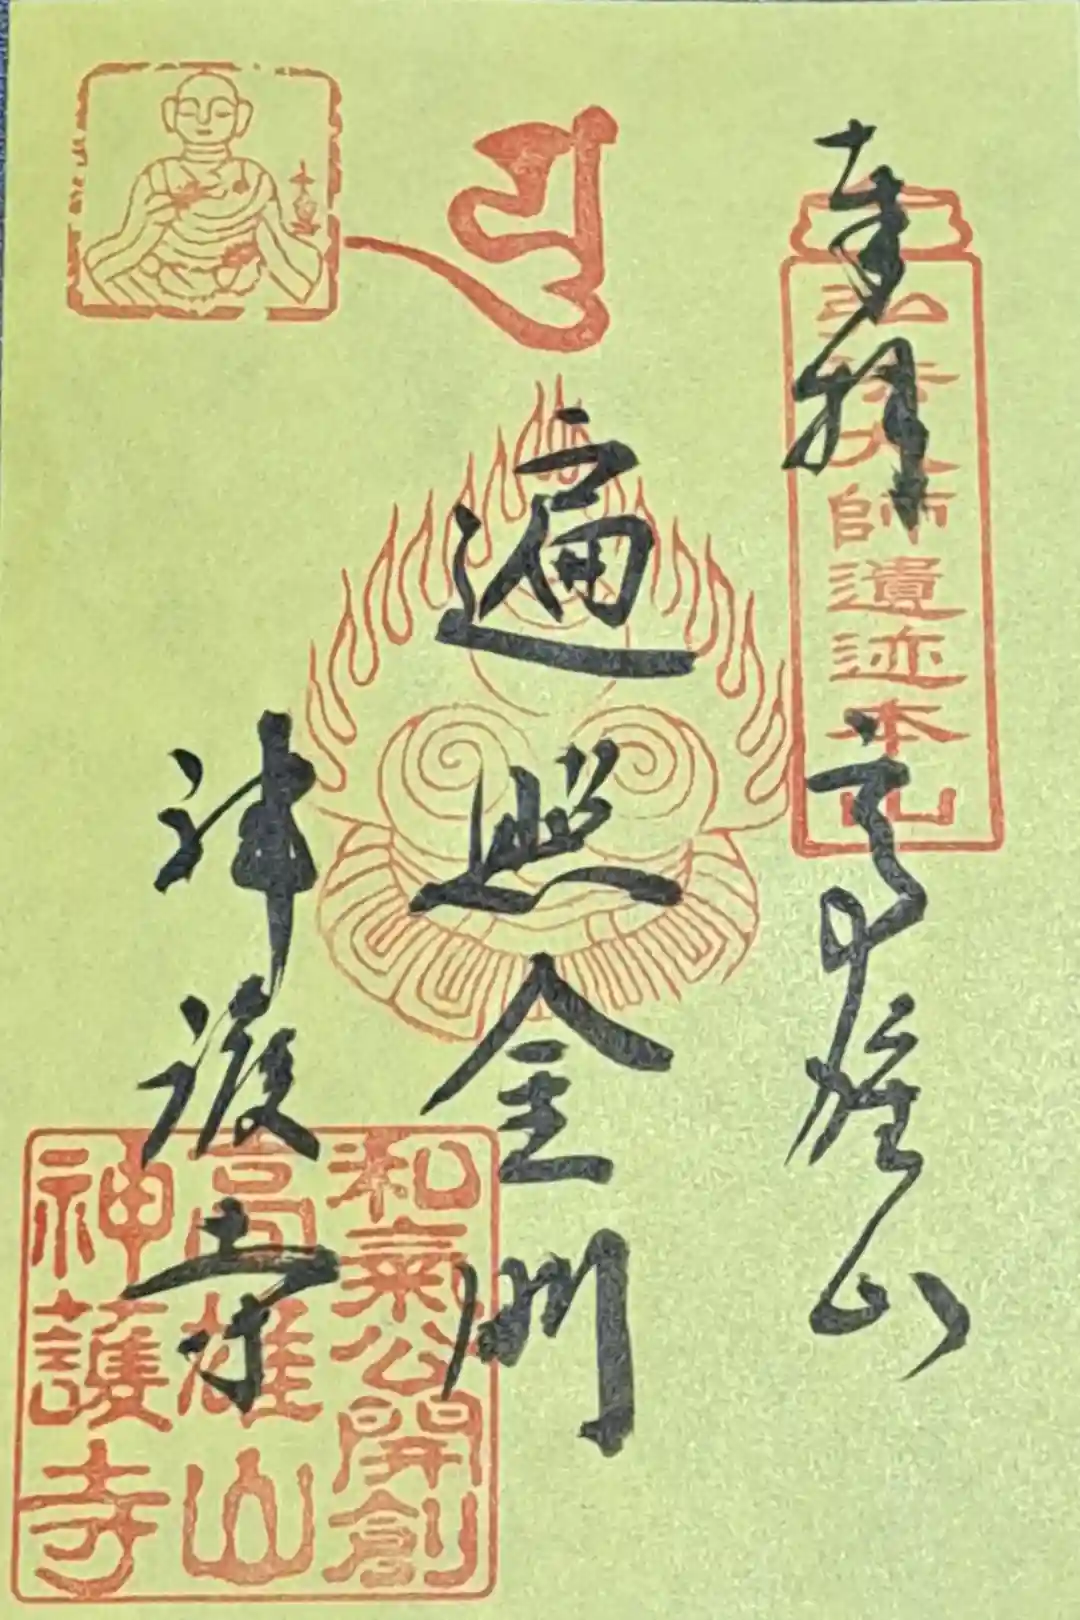 奉拝
高雄山
弘法大師遺迹本山
遍照金剛
神護寺
和氣公開創
高雄山
神護寺